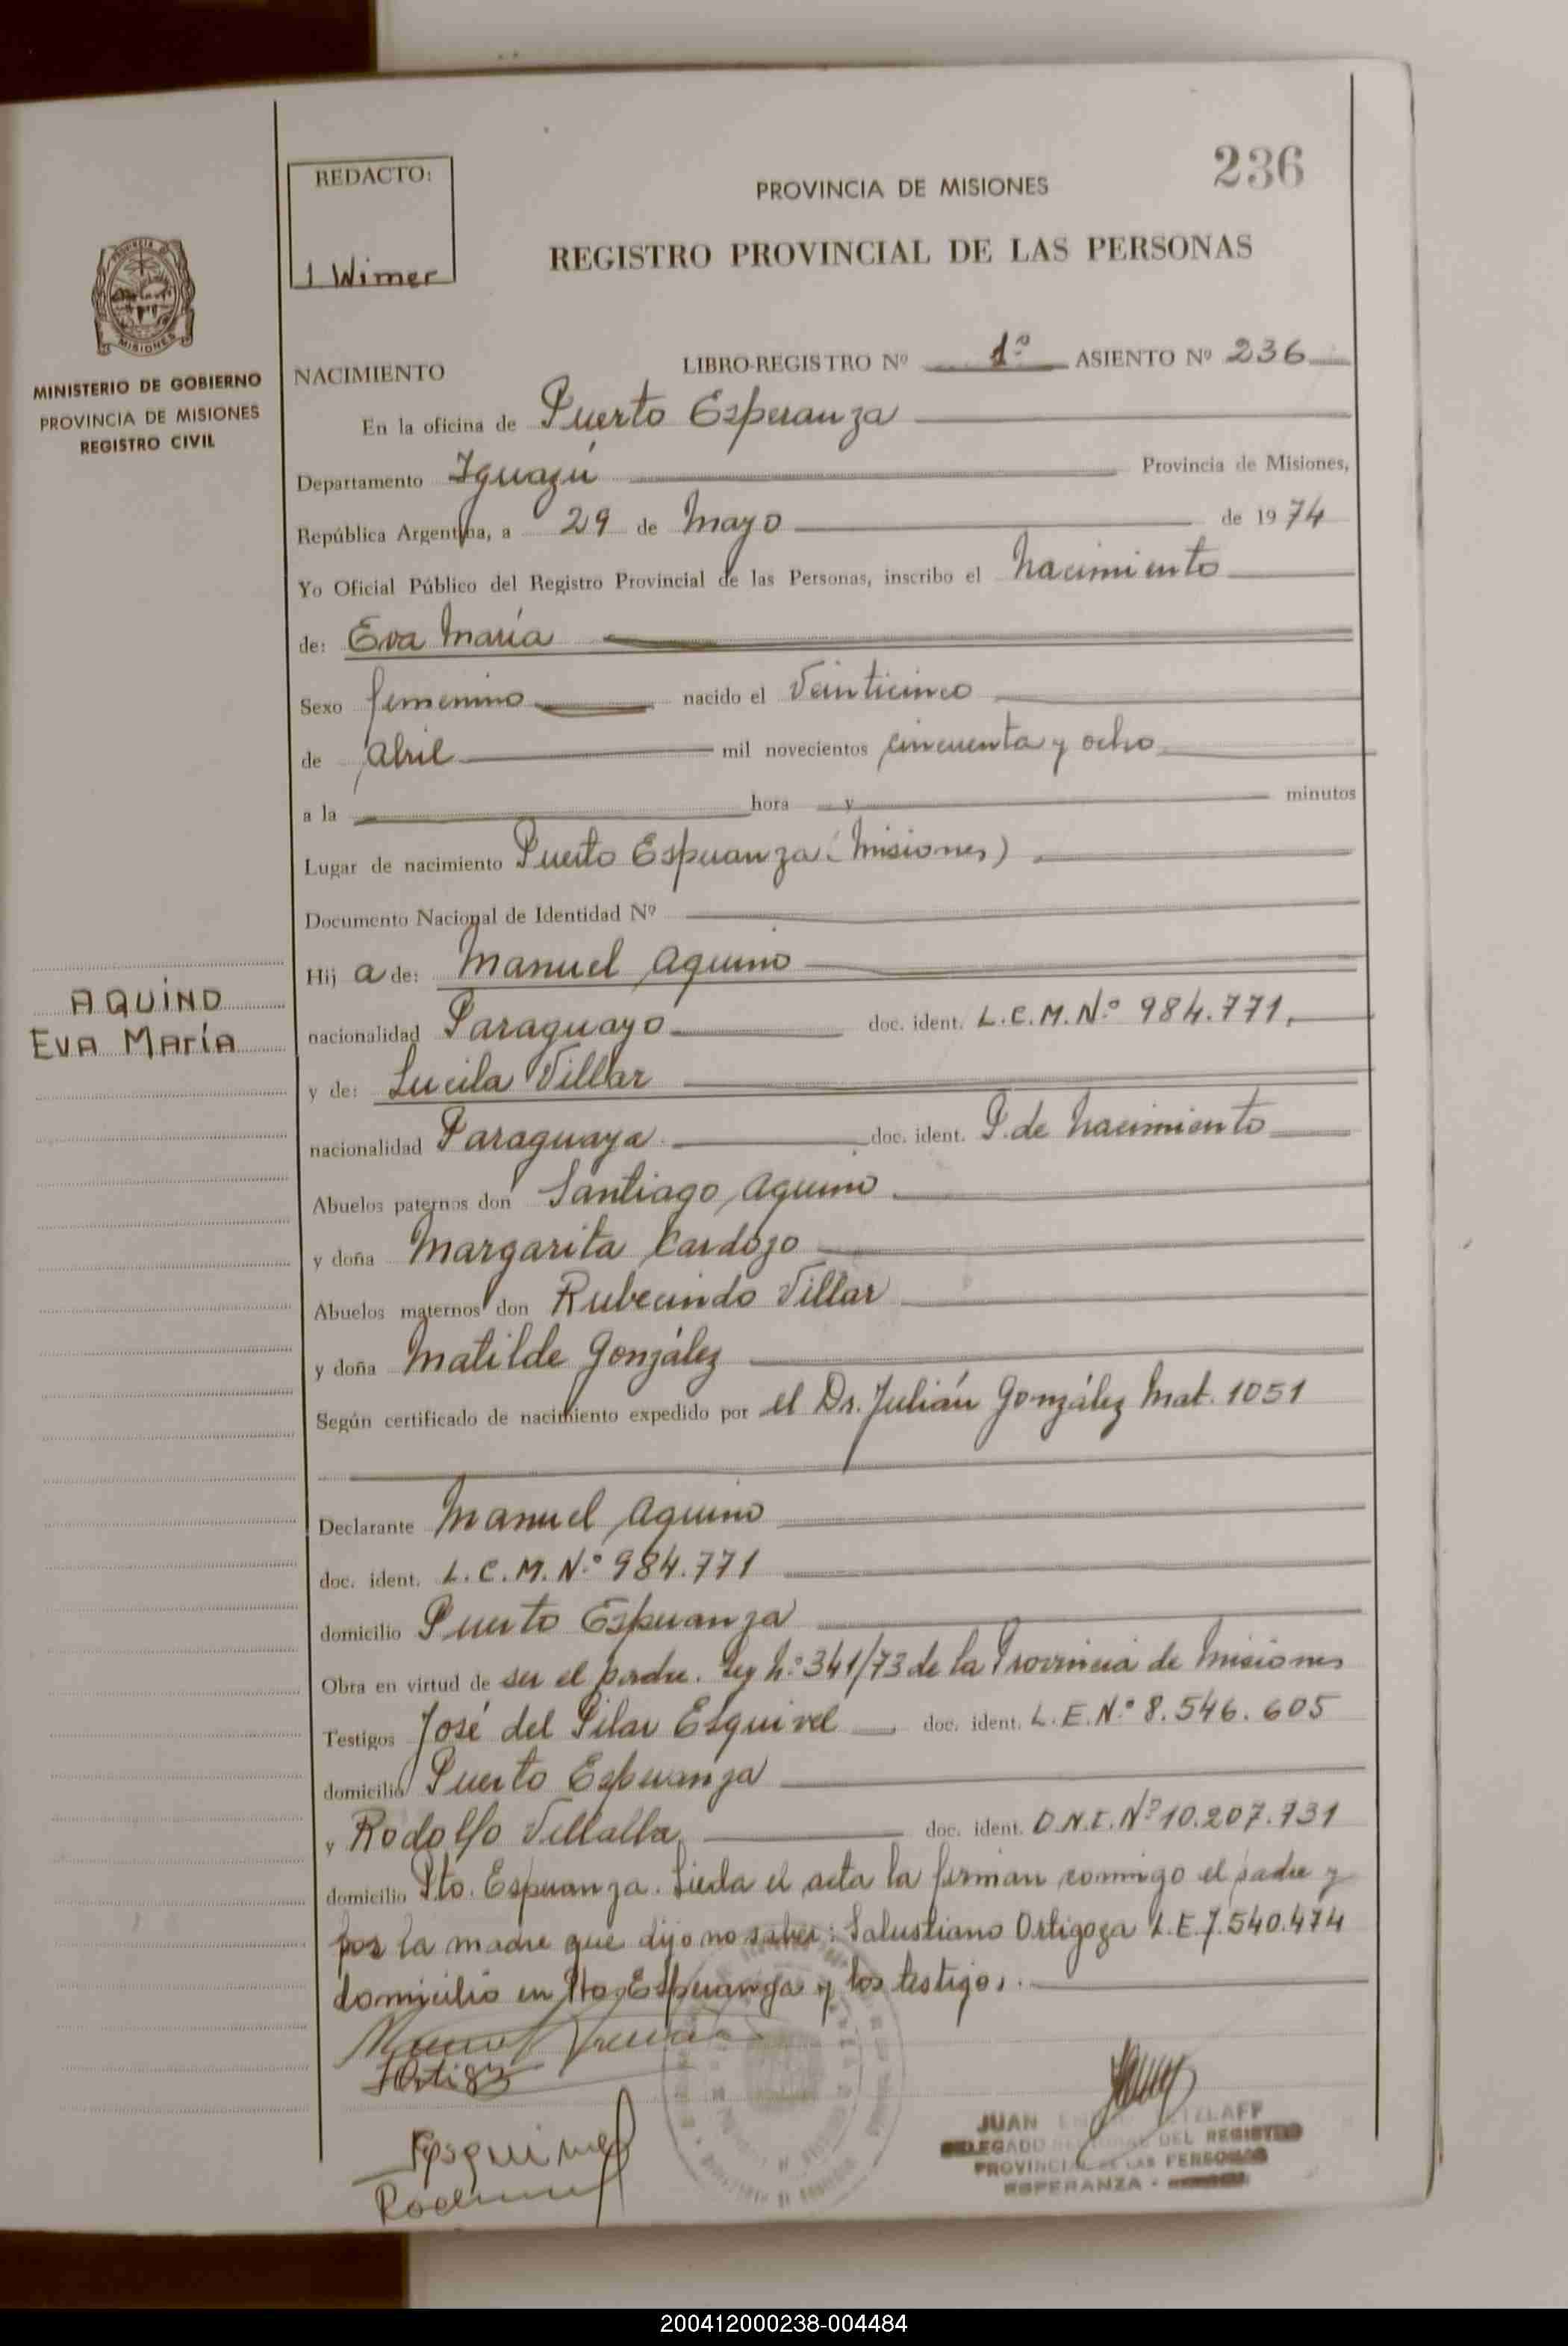 236
REDACTO:
J. Wimer
PROVINCIA DE MISIONES
REGISTRO PROVINCIAL DE LAS PERSONAS
MISIONES
MINISTERIO DE GOBIERNO
PROVINCIA DE MISIONES
REGISTRO CIVIL
NACIMIENTO LIBRO-REGISTRO Nº 1º ASIENTO Nº 236
En la oficina de Puerto Esperanza
Departamento Iguazú Provincia de Misiones,
República Argentina, a 29 de Mayo de 1974
Yo Oficial Público del Registro Provincial de las Personas, inscribo el nacimiento
de: Eva María
Sexo femenino nacido el Veinticinco
de Abril mil novecientos cincuenta y ocho
a la hora y minutos
Lugar de nacimiento Puerto Esperanza (Misiones)
Documento Nacional de Identidad Nº
AQUINO
EVA MARÍA
Hij a de: Manuel Aquino
nacionalidad Paraguayo doc. ident. L.C.M.N.º 984.771.
y de: Lucila Villar
nacionalidad Paraguaya doc. ident. P. de nacimiento
Abuelos paternos don Santiago Aquino
y doña Margarita Cardozo
Abuelos maternos don Rubecindo Villar
y doña Matilde González
Según certificado de nacimiento expedido por el Dr. Julián González Mat. 1051
Declarante Manuel Aquino
doc. ident. L.C.M.N.º 984.771
domicilio Puerto Esperanza
Obra en virtud de ser el padre. Ley N.º 341/73 de la Provincia de Misiones
Testigos José del Pilar Esquivel doc. ident. L.E.N.º 8.546.605
domicilio Puerto Esperanza
y Rodolfo Villalba doc. ident. D.N.I.Nº 10.207.731
domicilio Pto. Esperanza. Lieda el acta la firman conmigo el padre y
por la madre que dijo no saber: Salustiano Ortigoza L.E.7.540.474
domicilio en Pto. Esperanza y los testigos.
Esquivel
JUAN
DELEGADO DEL REGISTRO
PROVINCIAL DE LAS PERSONAS
ESPERANZA -
200412000238-004484